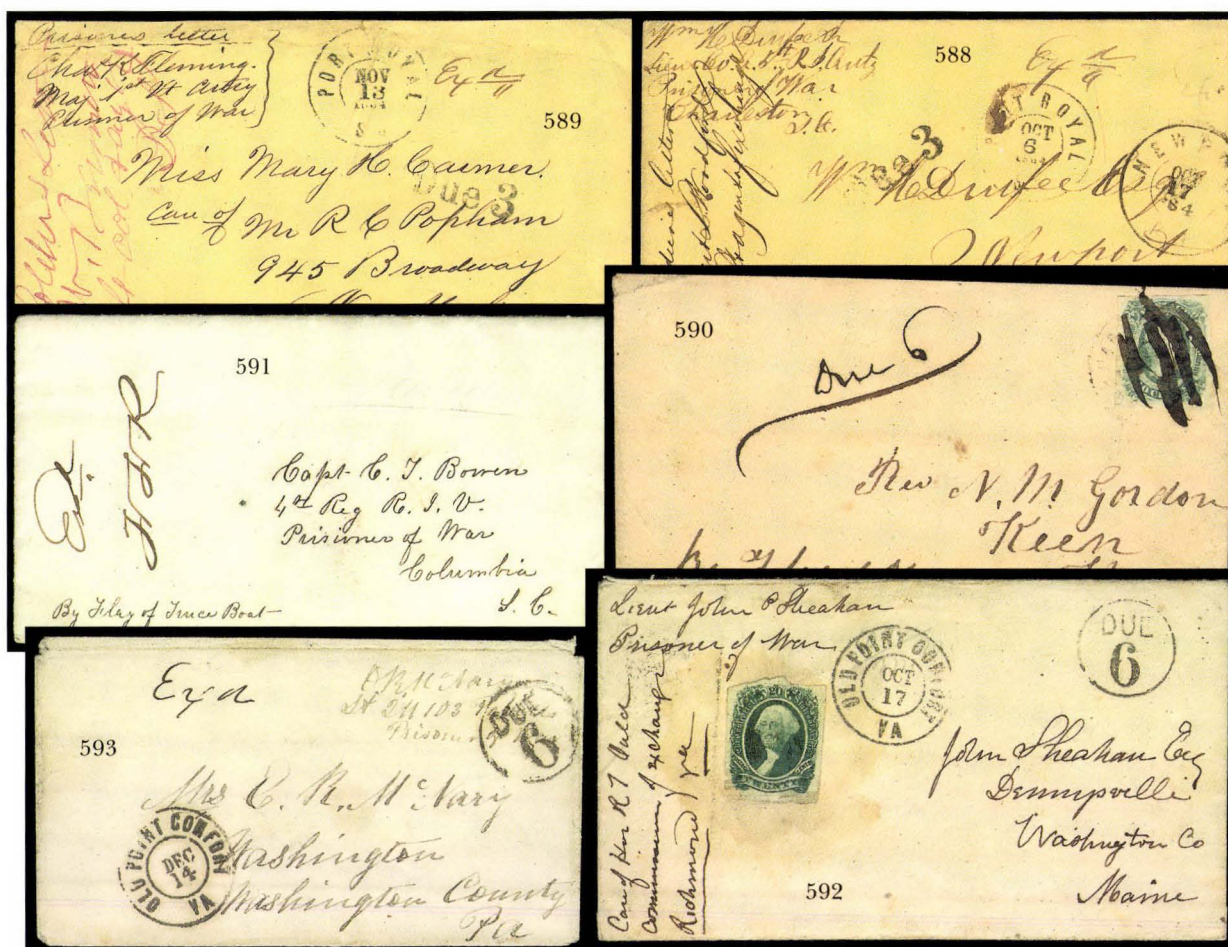 Prisoners letter
Chas K Fleming.
Maj 1st Vt Artey
Prisoner of War
PORT ROYAL
NOV
13
1864
S.C.
Exd
589
Miss Mary H.
Due 3
care of
Mr R C Popham
945 Broadway
Soldiers
Prisoner of War
Charleston
S.C.
588
Exd
PORT ROYAL
OCT
6
Due 3
NEWP
OCT
17
'64
Newport
591
Ex
Capt C. T. Bowen
4th Reg R. I. V.
Prisoner of War
Columbia
S. C.
By Flag of Truce Boat
590
Due 6
Rev N. M. Gordon
Keen
Exd
593
DUE
6
Mrs C. R. McNary
Washington
Washington County
Pa
OLD POINT COMFORT
DEC
14
VA
Lieut John P Sheahan
Prisoner of War
Care of Hon R T Ould
Commissioner of exchange
Richmond Va
20
TWENTY
OLD POINT COMFORT
OCT
17
VA
DUE
6
John Sheahan Esq
Dennysville
Washington Co
Maine
592